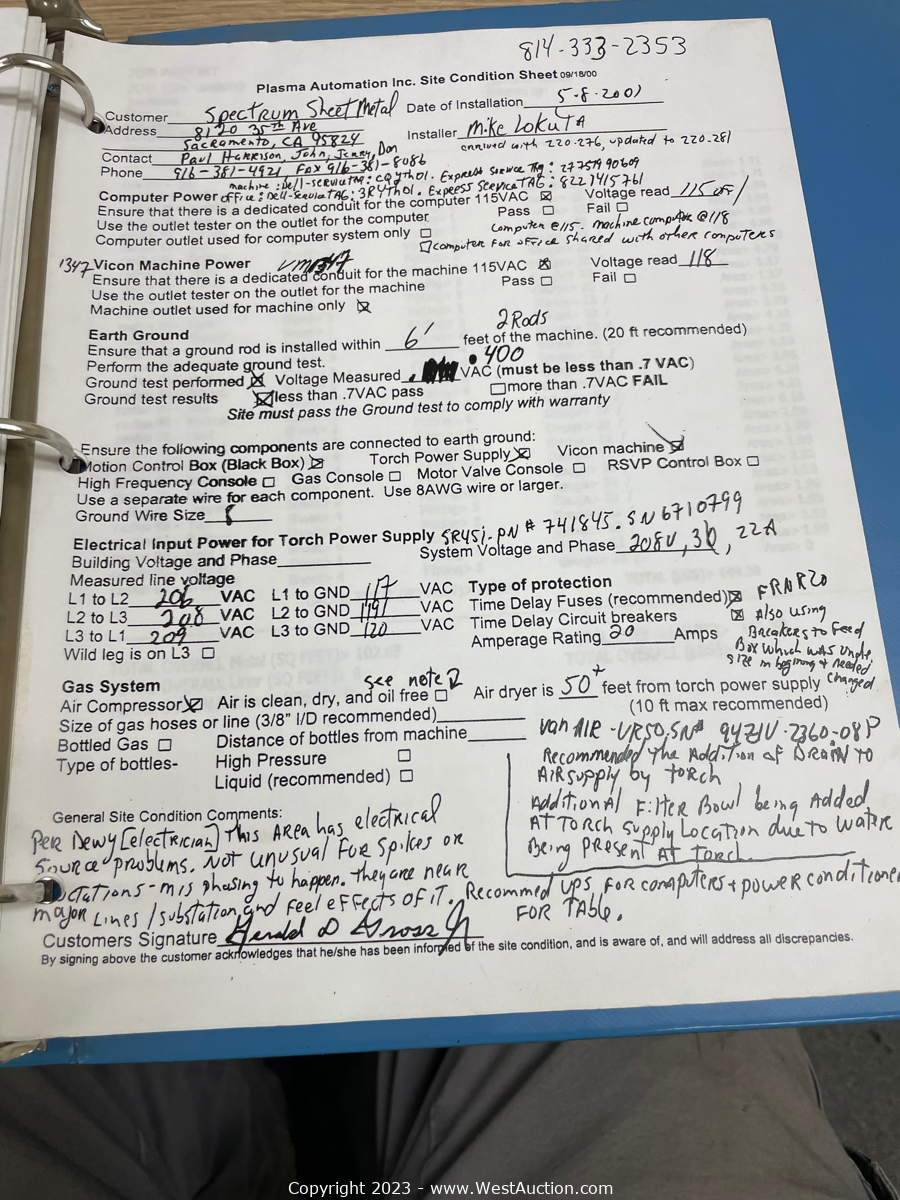 814-333-2353
Plasma Automation Inc. Site Condition Sheet 09/18/00
Customer Spectrum Sheet Metal Date of Installation 5-8-2001
Address 8120 35th Ave
Sacramento, CA 95824 Installer Mike Lokuta
arrived with 220.276, updated to 220.281
Contact Paul Harrison, John, Jerry, Don
Phone 916-381-4921, Fax 916-381-8086
machine: Dell-service tag: Express Service Tag: 27751990609
office: Dell-Service TAG: Express Service TAG: 8227415761
Computer Power
Ensure that there is a dedicated conduit for the computer 115VAC ☒ Voltage read 115 off/
Use the outlet tester on the outlet for the computer Pass ☐ Fail ☐
Computer outlet used for computer system only ☐ Computer @115. machine computer @118
computer for office shared with other computers
1347 Vicon Machine Power
Ensure that there is a dedicated conduit for the machine 115VAC ☒ Voltage read 118
Use the outlet tester on the outlet for the machine Pass ☐ Fail ☐
Machine outlet used for machine only ☒
Earth Ground 2 Rods
Ensure that a ground rod is installed within 6' feet of the machine. (20 ft recommended)
Perform the adequate ground test. .400
Ground test performed ☒ Voltage Measured VAC (must be less than .7 VAC)
Ground test results ☒ less than .7VAC pass ☐ more than .7VAC FAIL
Site must pass the Ground test to comply with warranty
Ensure the following components are connected to earth ground:
Motion Control Box (Black Box) ☒ Torch Power Supply ☒ Vicon machine ☒
High Frequency Console ☐ Gas Console ☐ Motor Valve Console ☐ RSVP Control Box ☐
Use a separate wire for each component. Use 8AWG wire or larger.
Ground Wire Size 8
Electrical Input Power for Torch Power Supply SR45i-PN # 741845. SN 6710799
Building Voltage and Phase System Voltage and Phase 208V, 3ϕ, 22A
Measured line voltage
L1 to L2 206 VAC L1 to GND 117 VAC Type of protection
L2 to L3 208 VAC L2 to GND VAC Time Delay Fuses (recommended) ☒ FRNR20
L3 to L1 209 VAC L3 to GND 120 VAC Time Delay Circuit breakers ☒ Also using
Wild leg is on L3 ☐ Amperage Rating 20 Amps Breakers to feed
Box which was under
size in beginning & needed
changed
Gas System see note
Air Compressor ☒ Air is clean, dry, and oil free ☐ Air dryer is 50+ feet from torch power supply
Size of gas hoses or line (3/8" I/D recommended) (10 ft max recommended)
Bottled Gas ☐ Distance of bottles from machine
Type of bottles- High Pressure ☐
Liquid (recommended) ☐
Van AIR - VR50, SN#
Recommended The Addition of Drain to
Air supply by torch
Additional Filter Bowl being Added
At torch supply Location due to water
Being present At torch.
General Site Condition Comments:
Per Dewy [electrician] This Area has electrical
Source problems. Not unusual for spikes or
mis phasing to happen. They are near
major lines/substation, and feel effects of it. Recommed ups for computers + power conditioner
for table.
Customers Signature Gerald D Gross Jr
By signing above the customer acknowledges that he/she has been informed of the site condition, and is aware of, and will address all discrepancies.
Copyright 2023 - www.WestAuction.com